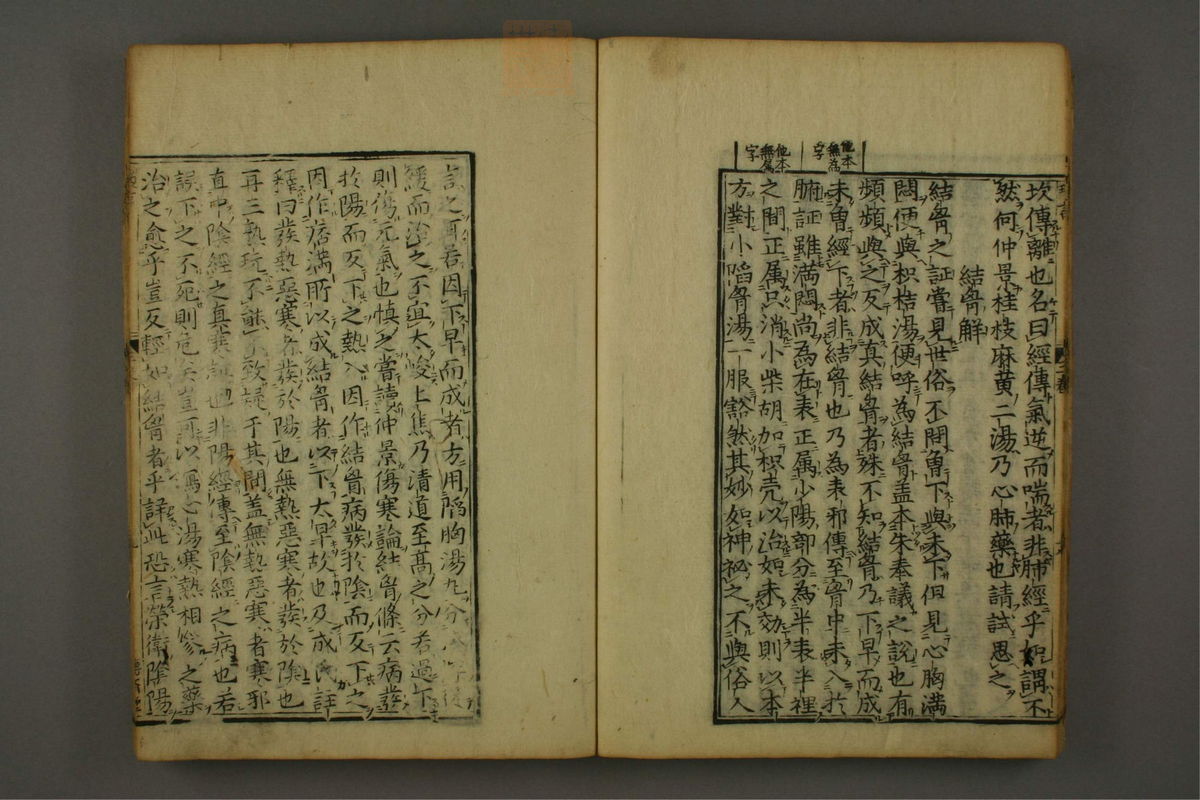 坎傳離也名曰經傳氣逆而喘者非肺經乎如謂不
然何仲景桂枝麻黄二湯乃心肺藥也請試思之
結胷解
結胷之証嘗見世俗不問曾下與未下但見心胸満
悶便與枳桔湯便呼為結胷盖本朱奉議之説也有
頻頻與之反成真結胷者殊不知結胷乃下早而成
未曾經下者非結胷也乃為表邪傳至胷中未入於
腑証雖満悶尚為在表正属少陽部分為半表半裡
之間正属只消小柴胡加枳壳以治如未効則以本
方對小陷胷湯一服豁然其妙如神秘之不與俗人
他本
無為
字
他本
無属
字
言之耳若因下早而成者方用陷胸湯丸分
緩而治之不宜大峻上焦乃清道至髙之分若過下
則傷元氣也慎之嘗讀仲景傷寒論結胷條云病發
於陽而反下之熱入因作結胷病發於陰而反下之
因作痞満所以成結胷者以下大早故也及成氏註
釋曰發熱惡寒者發於陽也無熱惡寒者發於陰也
再三熟玩不能致疑于其間盖無熱惡寒者寒邪
直中陰經之真寒証也非陽經傳至陰經之病也若
誤下之不死則危矣豈可以瀉心湯寒熱相參之藥
治之愈乎豈反輕如結胷者乎詳此恐言榮衛陰陽